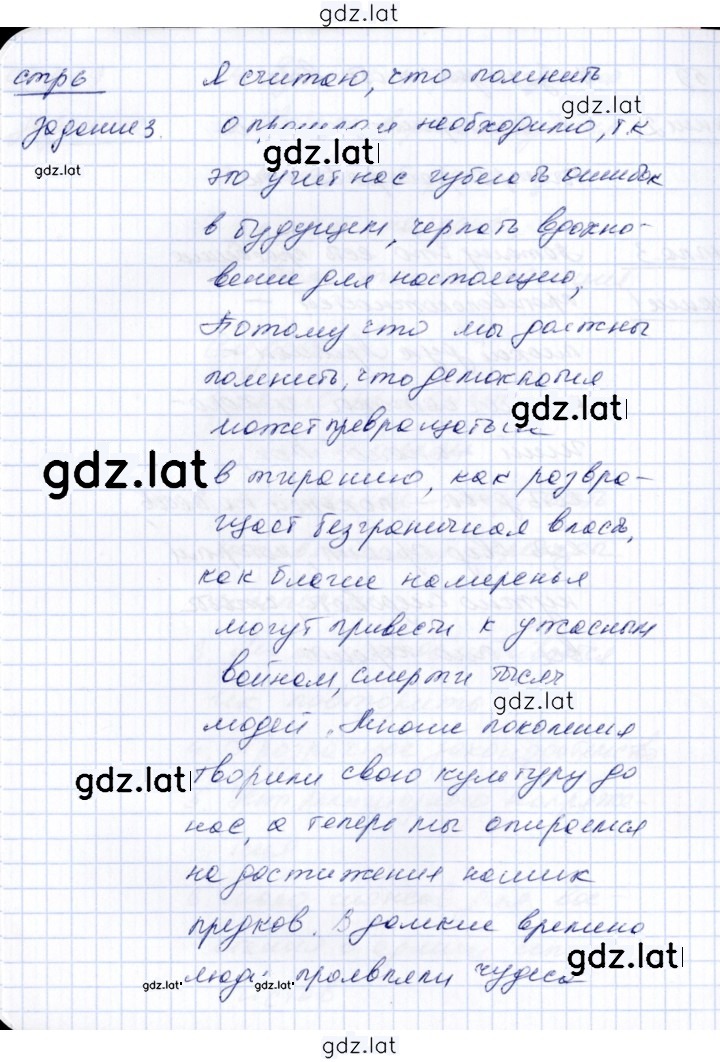 gdz.lat
стр 6 Я считаю, что помнить
gdz.lat
Задание 3. о прошлом необходимо, т.к
gdz.lat
gdz.lat
это учит нас избегать ошибок
в будущем, черпать вдохно-
вение для настоящего,
Потому что мы должны
помнить, что демократия
gdz.lat
может превращаться
gdz.lat
в тиранию, как развра-
щает безграничная власть,
как благие намеренья
могут привести к ужасным
войнам, смерти тысяч
gdz.lat
людей. Многие поколения
gdz.lat
творили свою культуру до
нас, а теперь мы опираемся
на достижения наших
предков. В далекие времена
gdz.lat
gdz.lat люди gdz.lat проявляли чудеса
gdz.lat